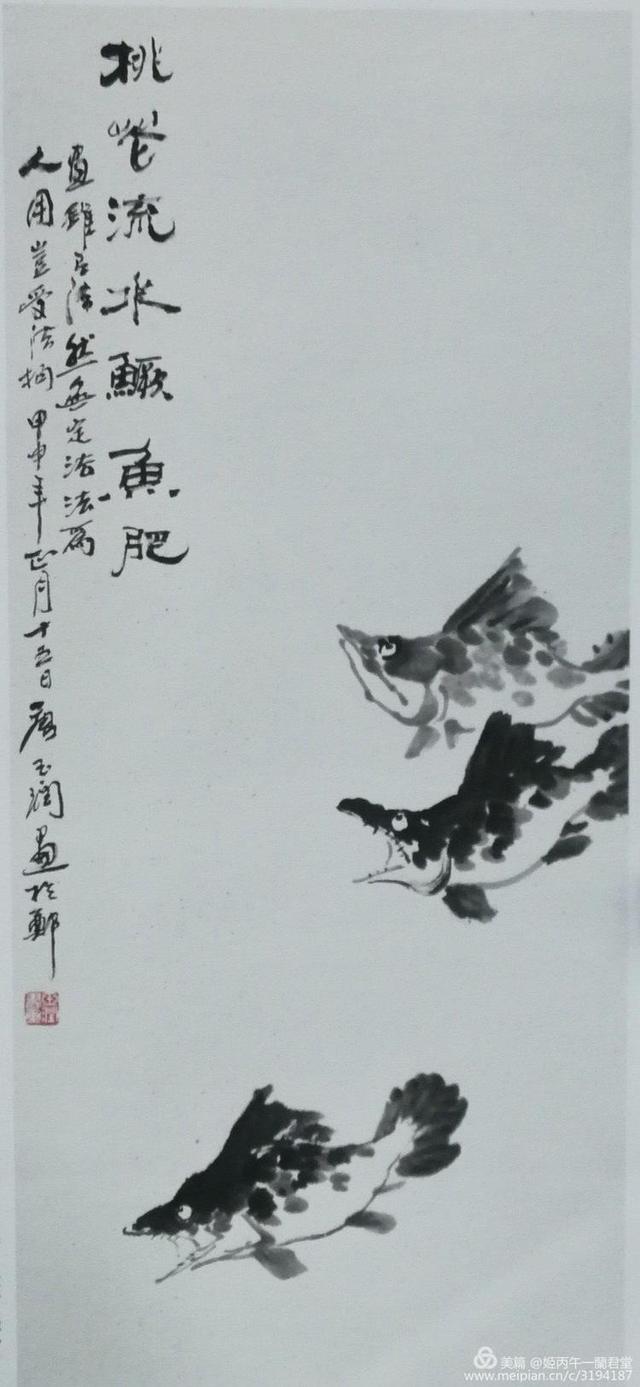 桃花流水鱖魚肥
畫雖有法然無定法法為
人用豈受法拘甲申年正月十五日唐玉潤畫於鄭
美篇 @姬丙午一蘭君堂
www.meipian.cn/c/3194187